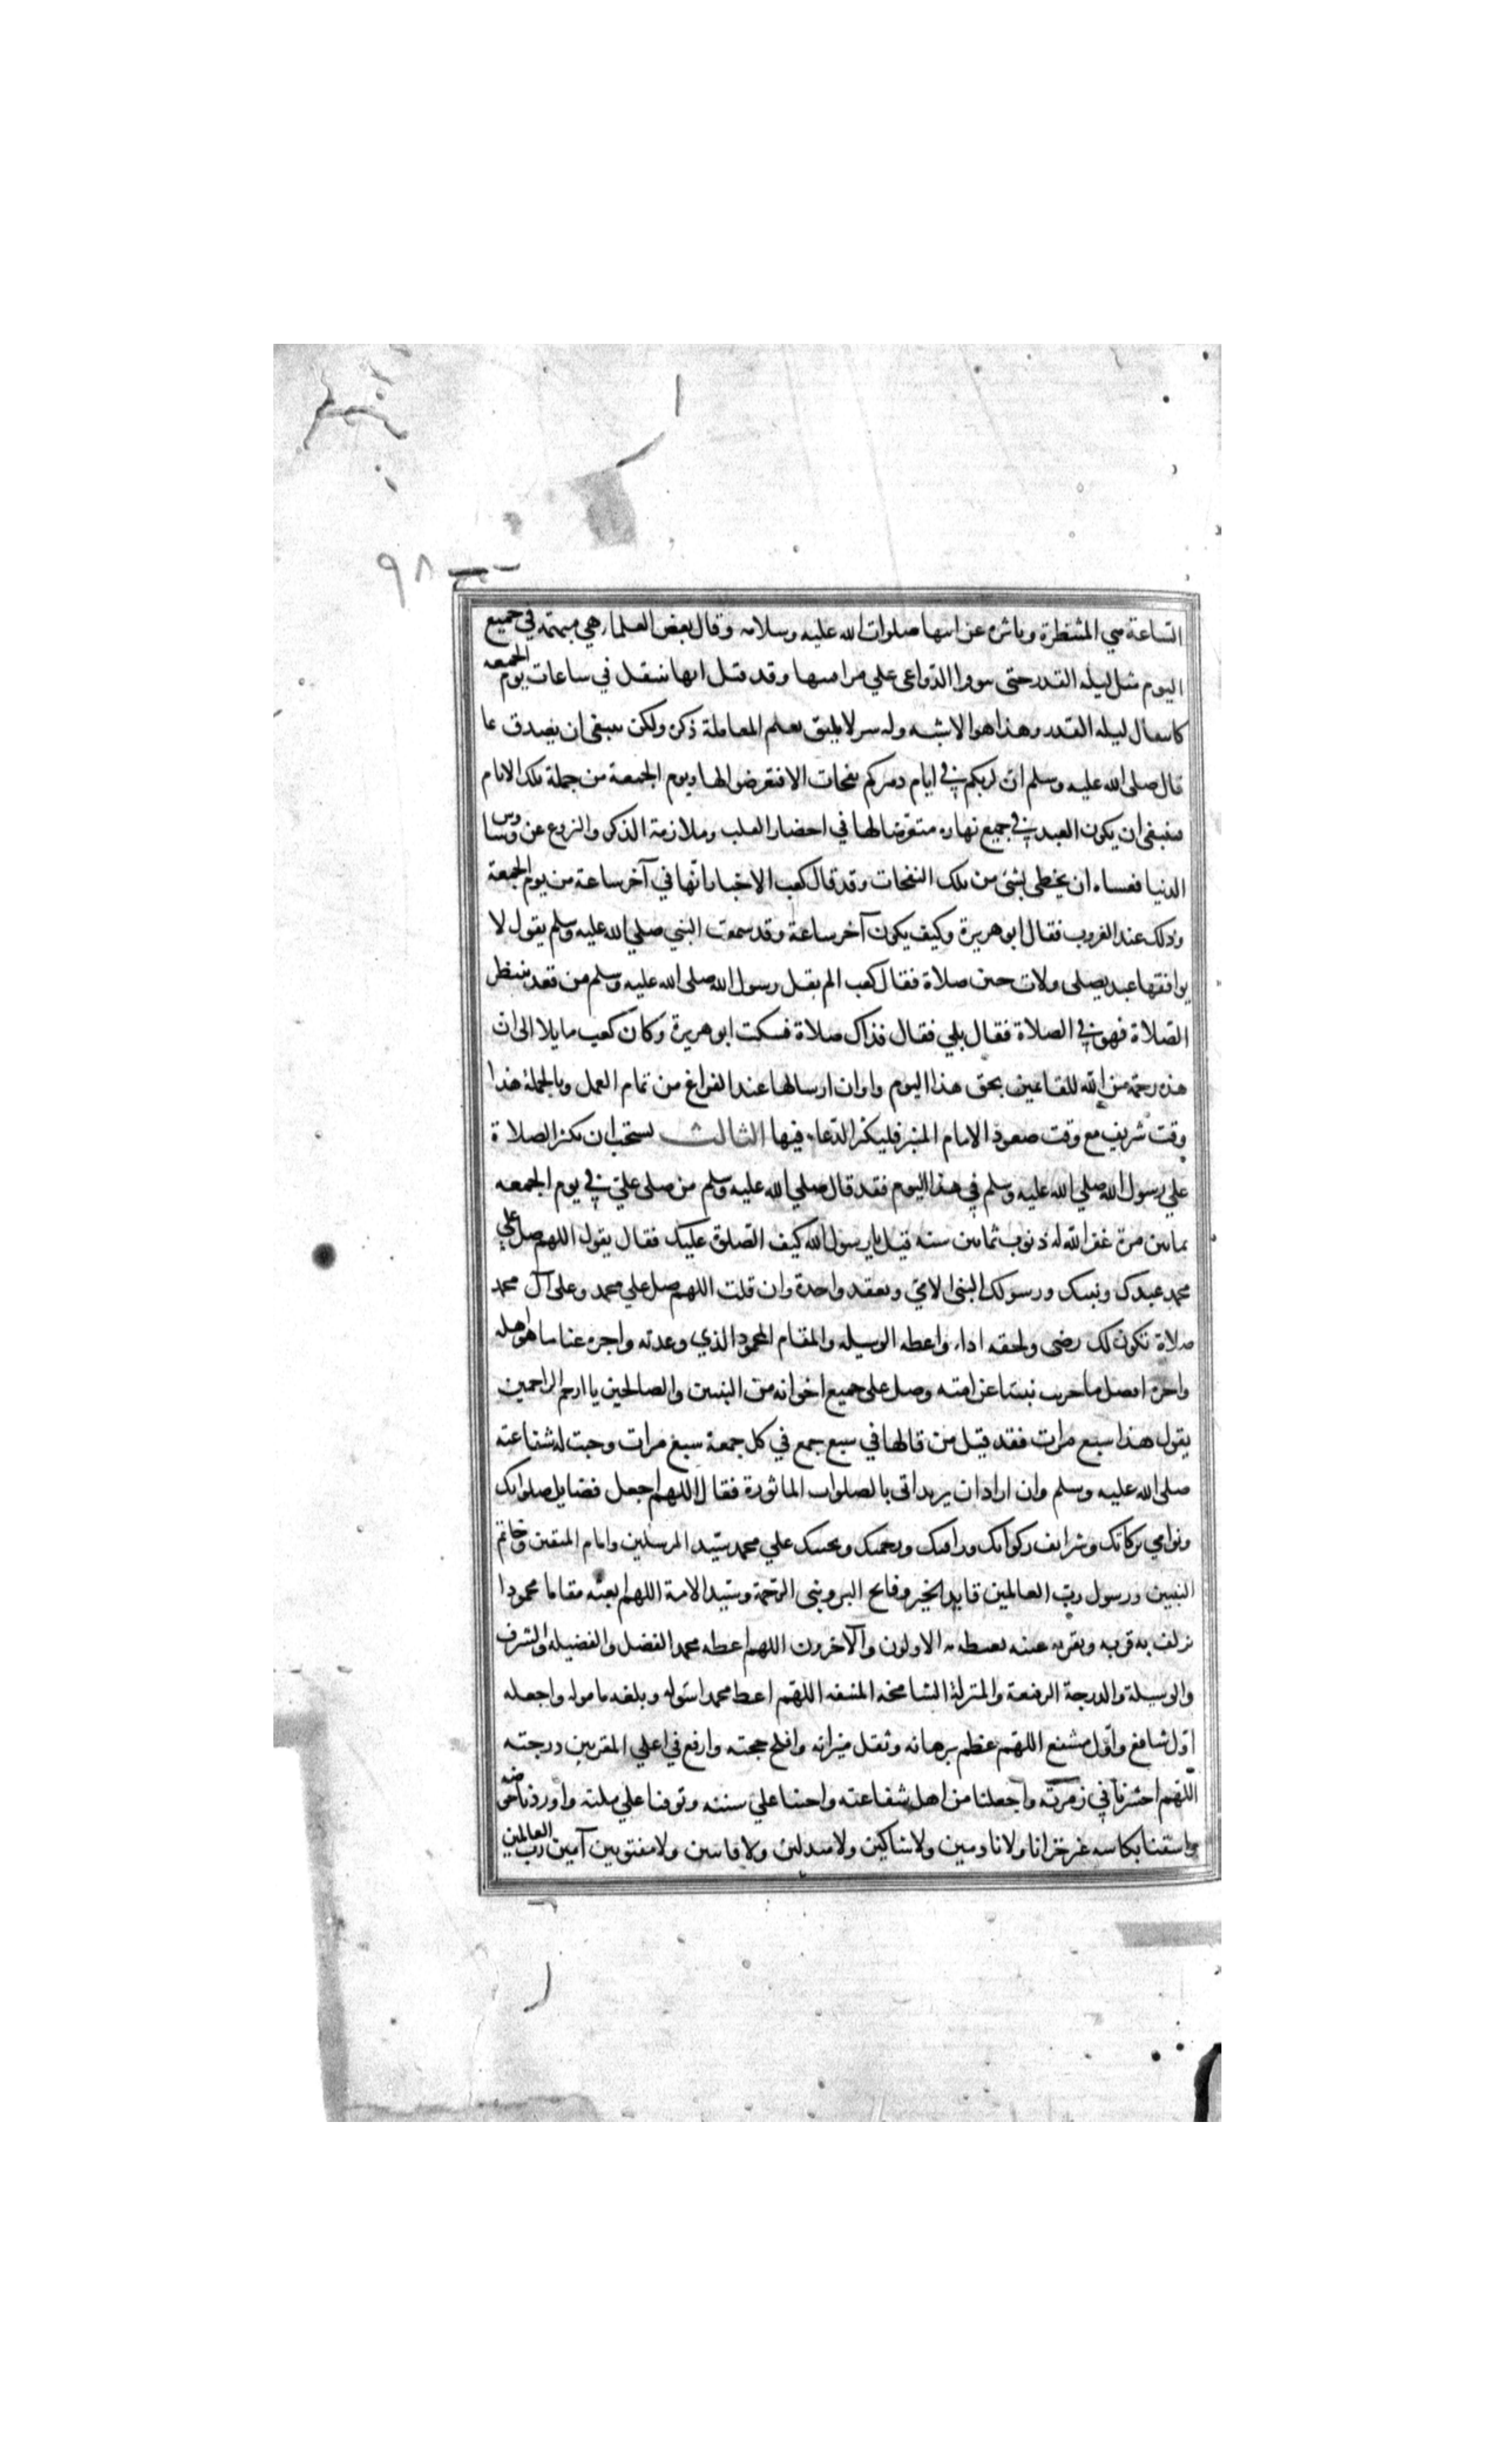 ٩٨
الساعة هي المنتظرة وتأثره عن ابيها صلوات الله عليه وسلامه وقال بعض العلماء هي مبهمة في جميع
اليوم مثل ليله القدر حتى يتوفر الدواعي علي مراقبتها وقد قيل انها تنتقل في ساعات يوم الجمعه
كانتقال ليله القدر وهذا هو الاشبه وله سر لا يليق بعلم المعاملة ذكره ولكن ينبغي ان يصدق بما
قال صلى الله عليه وسلم ان لربكم في ايام دهركم نفحات الا فتعرضوا لها ويوم الجمعة من جملة تلك الايام
فينبغي ان يكون العبد في جميع نهاره متعرضا لها في احضار القلب وملازمة الذكر والنزوع عن وساوس
الدنيا فعساه ان يحظى بشئ من تلك النفحات وقد قال كعب الاخبار انها في آخر ساعة من يوم الجمعة
وذلك عند الغروب فقال ابو هريرة وكيف يكون آخر ساعة وقد سمعت النبي صلي الله عليه وسلم يقول لا
يوافقها عبد يصلى ولات حين صلاة فقال كعب الم يقل رسول الله صلى الله عليه وسلم من قعد ينتظر
الصلاة فهو في الصلاة فقال بلي فقال فذاك صلاة فسكت ابو هريرة وكان كعب مايلا الى ان
هذه رحمة من الله للقائمين بحق هذا اليوم واوان ارسالها عند الفراغ من تمام العمل وبالجملة هذا
وقت شريف مع وقت صعود الامام المنبر فليكثر الدعاء فيها الثالث يستحب ان يكثر الصلاة
علي رسول الله صلي الله عليه وسلم في هذا اليوم فقد قال صلي الله عليه وسلم من صلى علي في يوم الجمعه
ثمانين مرة غفر الله له ذنوب ثمانين سنه قيل يا رسول الله كيف الصلوة عليك فقال يقول اللهم صل علي
محمد عبدك ونبيك ورسولك النبي الامي وتعقد واحدة وان قلت اللهم صل علي محمد وعلى آل محمد
صلاة تكون لك رضى ولحقه اداء واعطه الوسيله والمقام المحمود الذي وعدته واجزه عنا ما هو اهله
واجزه افضل ما جزيت نبيا عن امته وصل على جميع اخوانه من النبيين والصالحين يا ارحم الراحمين
يقول هذا سبع مرات فقد قيل من قالها في سبع جمع في كل جمعة سبع مرات وجبت له شفاعته
صلى الله عليه وسلم وان اراد ان يزيد اتى بالصلوات الماثورة فقال اللهم اجعل فضايل صلواتك
ونوامي بركاتك وشرايف زكواتك ورافتك ورحمتك وتحيتك علي محمد سيد المرسلين وامام المتقين وخاتم
النبيين ورسول رب العالمين قايد الخير وفاتح البر ونبى الرحمة وسيد الامة اللهم ابعثه مقاما محمودا
تزلف به قربه وتقر به عينه يغبطه به الاولون والآخرون اللهم اعطه محمد الفضل والفضيله والشرف
والوسيلة والدرجة الرفيعة والمنزلة الشامخة المنيفه اللهم اعط محمدا سوله وبلغه مامولا واجعله
اول شافع واول مشفع اللهم عظم برهانه وثقل ميزانه وافلح حجته وارفع في اعلي المقربين درجته
اللهم احشرنا في زمرته واجعلنا من اهل شفاعته واحينا علي سنته وتوفنا علي ملته واوردنا حوضه
واسقنا بكاسه غير خزايا ولا نادمين ولا شاكين ولا مبدلين ولا فاتنين ولا مفتونين آمين رب العالمين